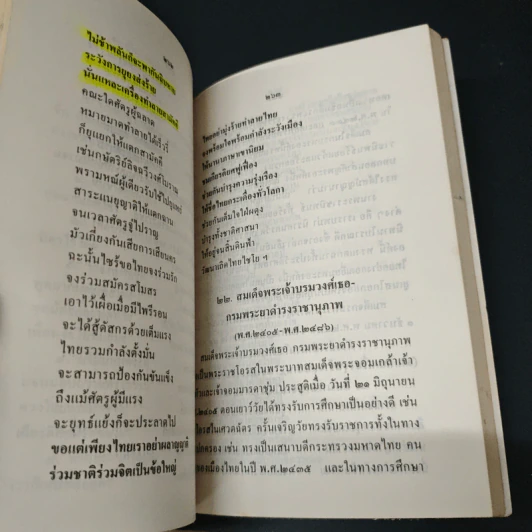 ๒๖๒
ไม่ช้าพลันก็จะพากัน
ระวังการยุยงส่งร้าย
นั่นแหละเครื่องทำลาย
คณะใดศัตรูผู้ฉลาด
หมายมาดทำลายให้เร็วรี่
ก็ยุแยกให้แตกสามัคคี
เช่นกษัตริย์ลิจฉวีวงศ์โบราณ
พราหมณ์ผู้เดียวรับใช้ไป
สาระแนยุญาติให้แตกฉาน
จนเวลาศัตรูจู่ไปราญ
มัวเกี่ยงกันเสียการเสียนคร
ฉะนั้นไซร้ขอไทยจงร่วมรัก
จงร่วมสมัครสโมสร
เอาไว้เผื่อเมื่อมีไพรีรอน
จะได้สู้ดัสกรด้วยเต็มแรง
ไทยรวมกำลังตั้งมั่น
จะสามารถป้องกันขันแข็ง
ถึงแม้ศัตรูผู้มีแรง
จะยุทธ์แย้งก็จะปลาตไป
ขอแต่เพียงไทยเราอย่าผลาญญาติ
ร่วมชาติร่วมจิตเป็นข้อใหญ่
๒๖๓
ไทยอย่ามุ่งร้ายทำลายไทย
จงพร้อมใจพร้อมกำลังระวังเมือง
ให้นานาภาษาเขานิยม
ชมเกียรติยศฟูเฟื่อง
ช่วยกันบำรุงความรุ่งเรือง
ให้ชื่อไทยกระเดื่องทั่วโลกา
ช่วยกันเต็มใจใฝ่ผดุง
บำรุงทั้งชาติศาสนา
ให้อยู่จนสิ้นดินฟ้า
วัฒนาเถิดไทยไชโย ฯ
๒๒. สมเด็จพระเจ้าบรมวงศ์เธอ
กรมพระยาดำรงราชานุภาพ
(พ.ศ.๒๔๐๕-พ.ศ.๒๔๘๖)
สมเด็จพระเจ้าบรมวงศ์เธอ กรมพระยาดำรงราชานุภาพ
เป็นพระราชโอรสในพระบาทสมเด็จพระจอมเกล้าเจ้า
และเจ้าจอมมารดาชุ่ม ประสูติเมื่อ วันที่ ๒๑ มิถุนายน
๒๔๐๕ ตอนเยาว์วัยได้ทรงรับการศึกษาเป็นอย่างดี เช่น
โอรสในเศวตฉัตร ครั้นเจริญวัยทรงรับราชการทั้งในทาง
ปกครอง เช่น ทรงเป็นเสนาบดีกระทรวงมหาดไทย คน
ของเมืองไทยในปี พ.ศ.๒๔๓๕ และในทางการศึกษา